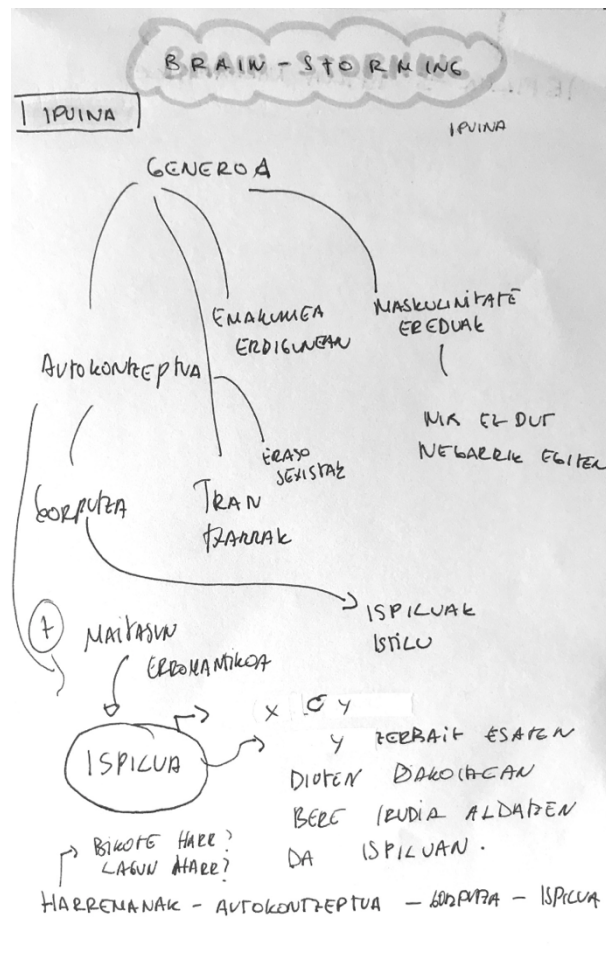 BRAIN-STORMING
1 IPUINA
IPUINA
GENEROA
EMAKUMEA
ERDIGUNEAN
MASKULINITATE
EREDUAK
AUTOKONTZEPTUA
NIK EZ DUT
NEGARRIK EGITEN
ERASO
SEXISTAK
GORPUTZA
TRAN
TZARRAK
ISPILUAK
ISTILU
+ MAITASUN
ERROMANTIKOA
X Y
ISPILUA
Y ZERBAIT ESATEN
DIOTEN BAKOITZEAN
BERE IRUDIA ALDATZEN
DA ISPILUAN.
BIKOTE HARR?
LAGUN HARR?
HARREMANAK - AUTOKONTZEPTUA - GORPUTZA - ISPILUA